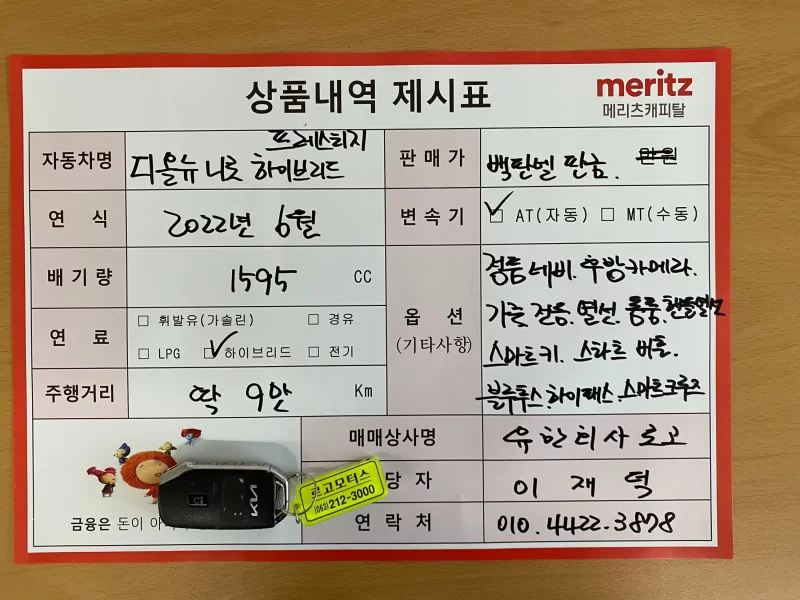 상품내역 제시표
meritz
메리츠캐피탈
자동차명
프레스티지
디올뉴 니로 하이브리드
판매가
백판넬 판금.
만원
연 식
2022년 6월
변속기
☑ AT(자동) ☐ MT(수동)
배기량
1595 CC
옵 션
(기타사항)
정품네비. 후방카메라.
가죽.전음.열선.통풍.핸들열선
스마트키. 스타트 버튼.
블루투스.하이패스.스마트크루즈
연 료
☐ 휘발유(가솔린) ☐ 경유
☐ LPG ☑ 하이브리드 ☐ 전기
주행거리
딱 9만 Km
매매상사명
유한회사 로고
당 자
이 재 덕
연 락 처
010.4422.3878
금융은 돈이 아
로고모터스
(063)212-3000
KIA